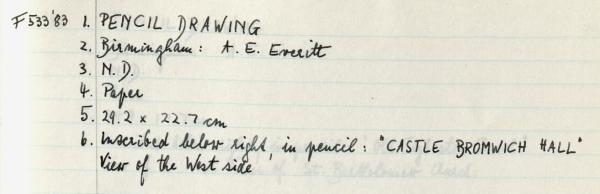 F533'83 1. PENCIL DRAWING
2. Birmingham: A. E. Everitt
3. N.D.
4. Paper
5. 29.2 x 22.7 cm
6. Inscribed below right, in pencil: "CASTLE BROMWICH HALL"
View of the West side